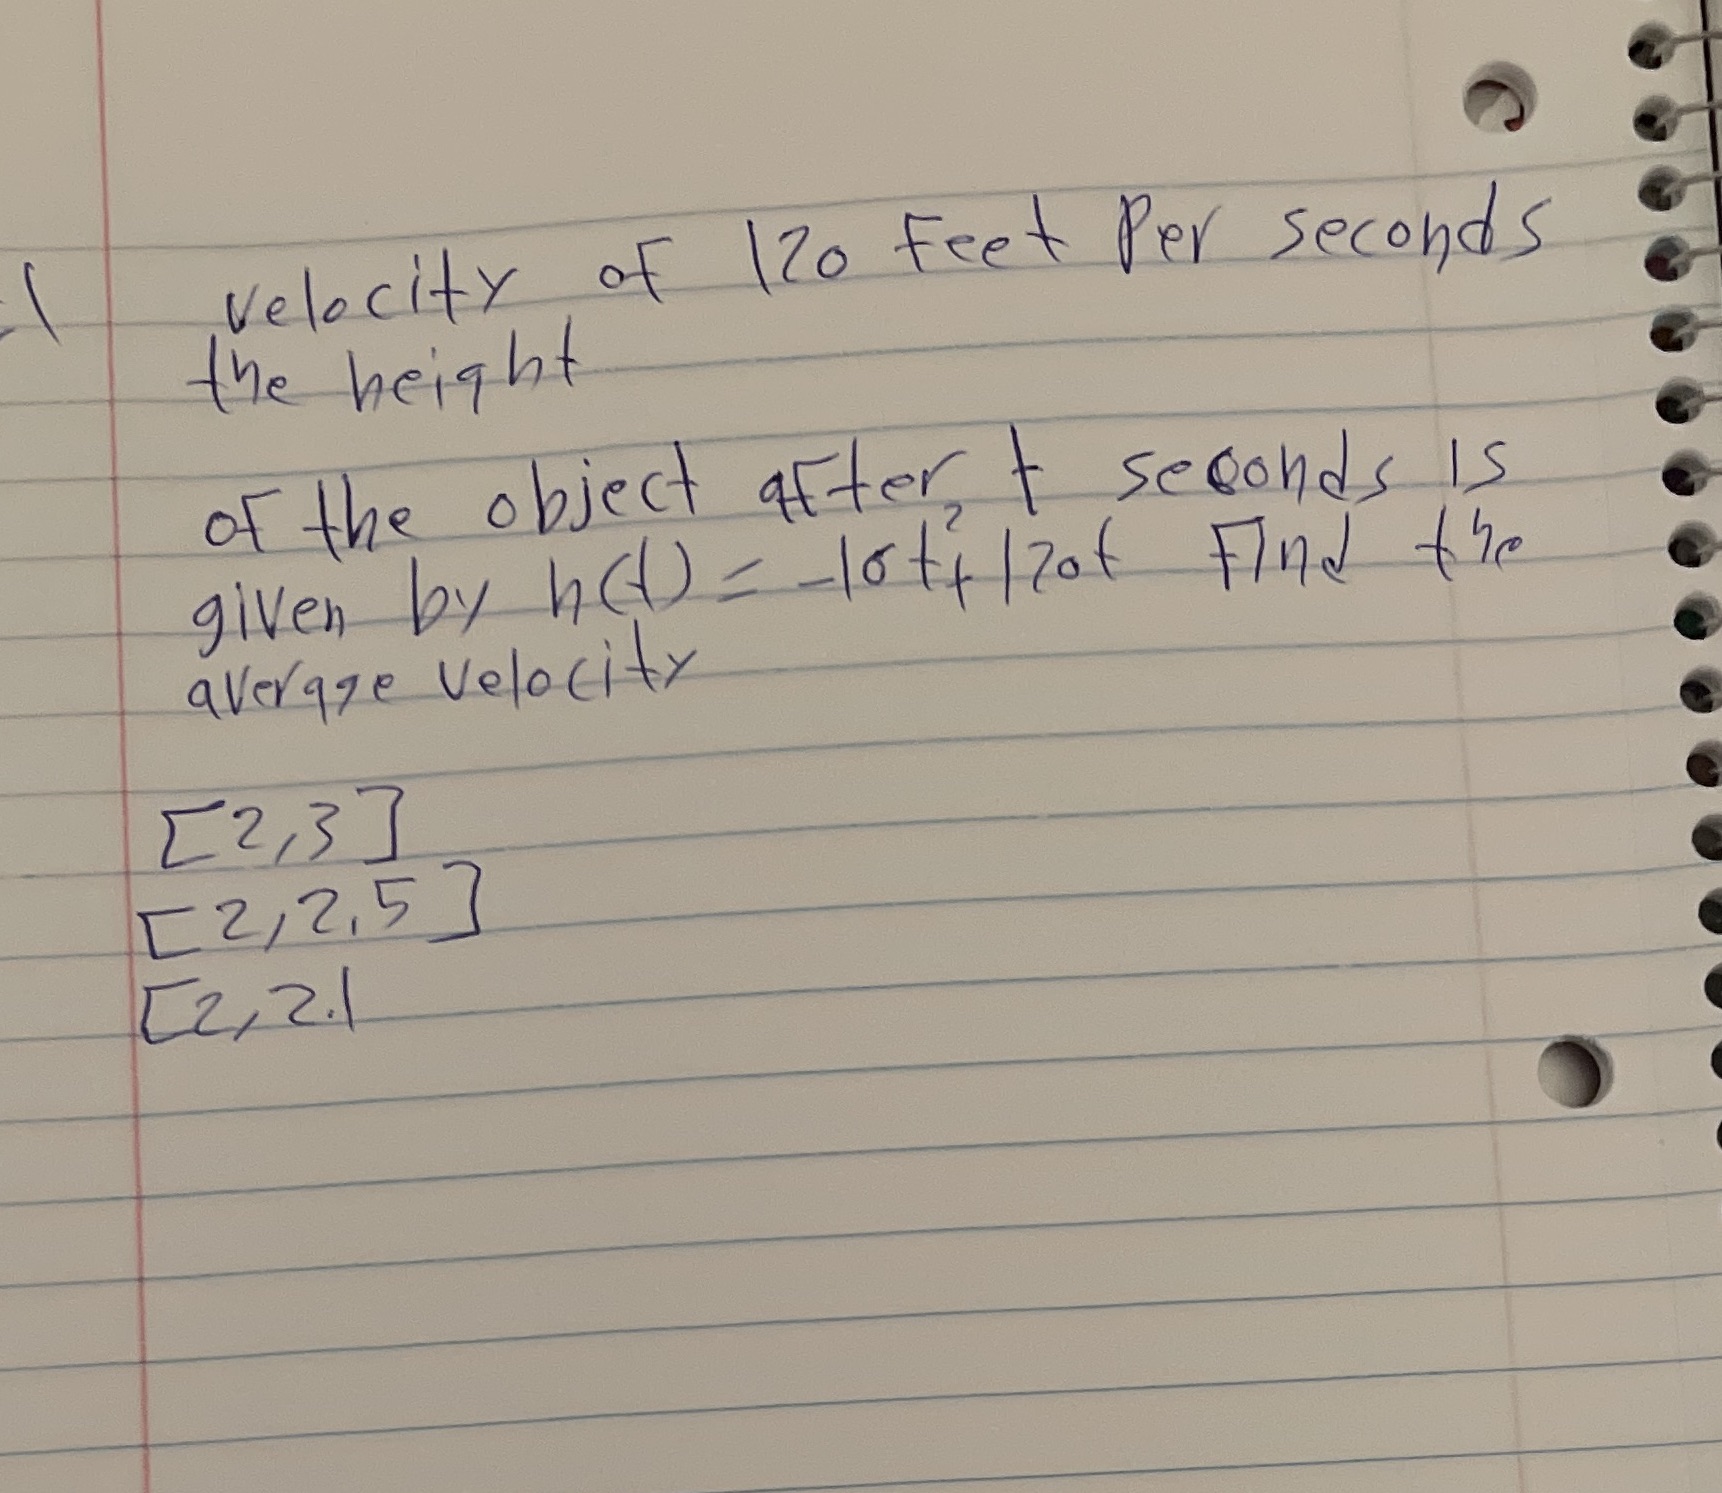 velocity of 120 feet per seconds
the height
of the object after t seconds is
given by h(t) = -16t²+120t Find the
average velocity
[2,3]
[2,2.5]
[2,2.1